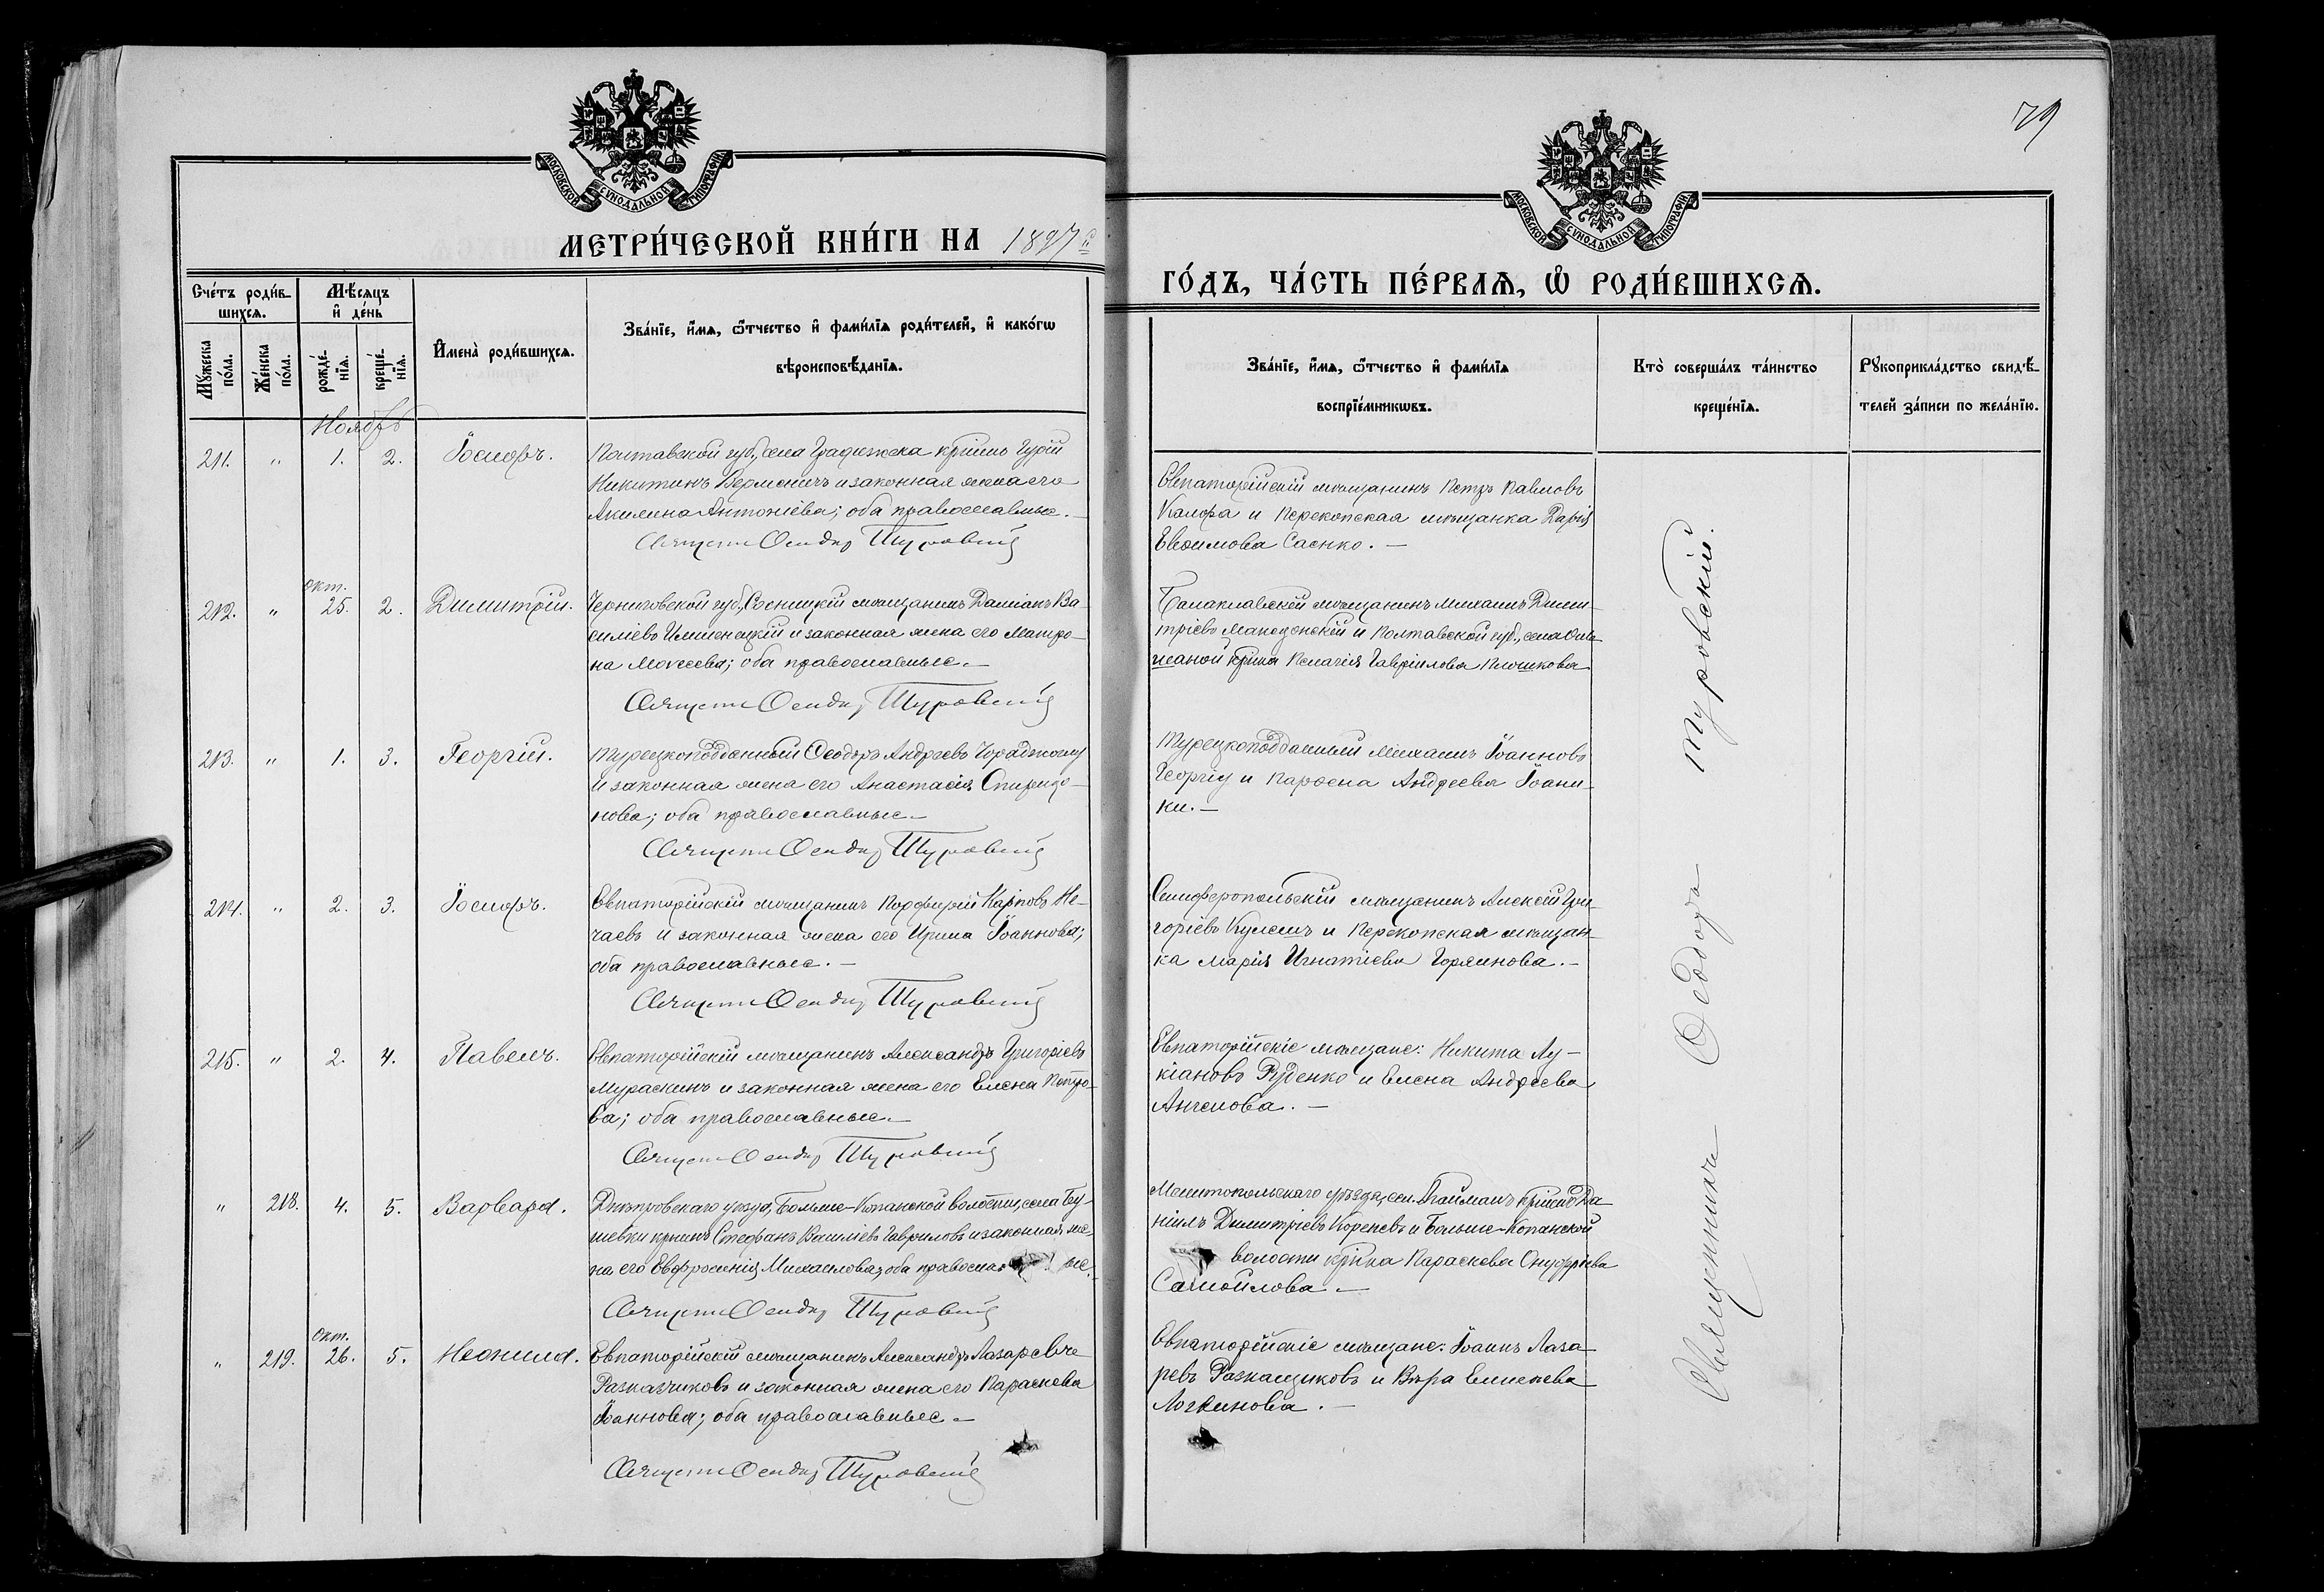 79
МОСКОВСКОЙ СѴНОДАЛЬНОЙ ТИПОГРАФІИ
МОСКОВСКОЙ СѴНОДАЛЬНОЙ ТИПОГРАФІИ
МЕТРИ́ЧЕСКОЙ КНИ́ГИ НА 1897й
ГО́ДЪ, ЧА́СТЬ ПЕ́РВАѦ, Ѡ҆ РОДИ́ВШИХСѦ.
Сче́тъ роди́в-
шихсѧ.
Мѣ́сяцъ
и҆ де́нь
Мꙋ́жеска
по́ла.
Же́нска
по́ла.
рожде́-
нїѧ.
креще́-
нїѧ.
И҆мена̀ роди́вшихсѧ.
Зва́нїе, и҆́мѧ, ѻ҆́тчество и҆ фами́лїѧ роди́телей, и҆ како́гѡ
вѣроисповѣ́данїѧ.
Зва́нїе, и҆́мѧ, ѻ҆́тчество и҆ фами́лїѧ
воспрїе́мникѡвъ.
Кто̀ соверша́лъ та́инство
креще́нїѧ.
Рꙋкоприкла́дство свидѣ́-
телей за́писи по жела́нїю.
Ноябрь
211. " 1. 2. Іосифъ.
Полтавской губ., села Градижска кр҃нинъ Гурій
Никитинъ и законная жена его
Акилина Антоніева; оба православные.-
Священ Ѳеодор Туровский
Евпаторійскій мѣщанинъ Петръ Павловъ
Калфа и Перекопская мѣщанка Дарія
Евѳимова Саенко.-
окт.
212. " 25. 2. Димитрій.
Черниговской губ., Сосницкій мѣщанинъ Даміанъ Ва-
силіевъ и законная жена его Матро-
на Моисеева; оба православные.-
Священ Ѳеодор Туровский
Балаклавскій мѣщанинъ Михаилъ Дими-
тріевъ и Полтавской губ., села
кр҃нка Пелагія Гавріилова Плошкова
213. " 1. 3. Георгій.
Турецкоподданный Ѳеодоръ Андреевъ
и законная жена его Анастасія Спиридо-
нова; оба православные.-
Священ Ѳеодор Туровский
Турецкоподданный Михаилъ Іоанновъ
Георгіу и Парѳена Андреева Іоани-
ки.-
214. " 2. 3. Іосифъ.
Евпаторійскій мѣщанинъ Порфирій Карповъ Не-
чаевъ и законная жена его Ирина Іоаннова;
оба православные.-
Священ Ѳеодор Туровский
Симферопольскій мѣщанинъ Алексій Гри-
горіевъ Кулешъ и Перекопская мѣщан-
ка Марія Игнатіева Горяинова.-
215. " 2. 4. Павелъ.
Евпаторійскій мѣщанинъ Александръ Григоріевъ
Мураскинъ и законная жена его Елена Петро-
ва; оба православные.-
Священ Ѳеодор Туровский
Евпаторійскіе мѣщане: Никита Лу-
кіановъ Руденко и Елена Андреева
Ангелова.-
" 218. 4. 5. Варвара.
Днѣпровскаго уѣзда, Больше-Копанской волости, села
кр҃нинъ Стефанъ Василіевъ Гавриловъ и законная же-
на его Евфросинія Михаилова; оба правосла ые.
Священ Ѳеодор Туровский
Мелитопольскаго уѣзда, сел. кр҃нинъ Да-
ніилъ Димитріевъ Кореневъ и Больше-Копанской
волости кр҃нка Параскева Онуфріева
Самойлова.-
окт.
" 219. 26. 5. Неонила.
Евпаторійскій мѣщанинъ Александръ Лазаревъ
Разказчиковъ и законная жена его Параскева
Іоаннова; оба православные.-
Священ Ѳеодор Туровский
Евпаторійскіе мѣщане: Іоаннъ Лаза-
ревъ Разкащиковъ и Вѣра Елисеева
Логвинова.-
Священникъ Ѳеодоръ Туровскій.